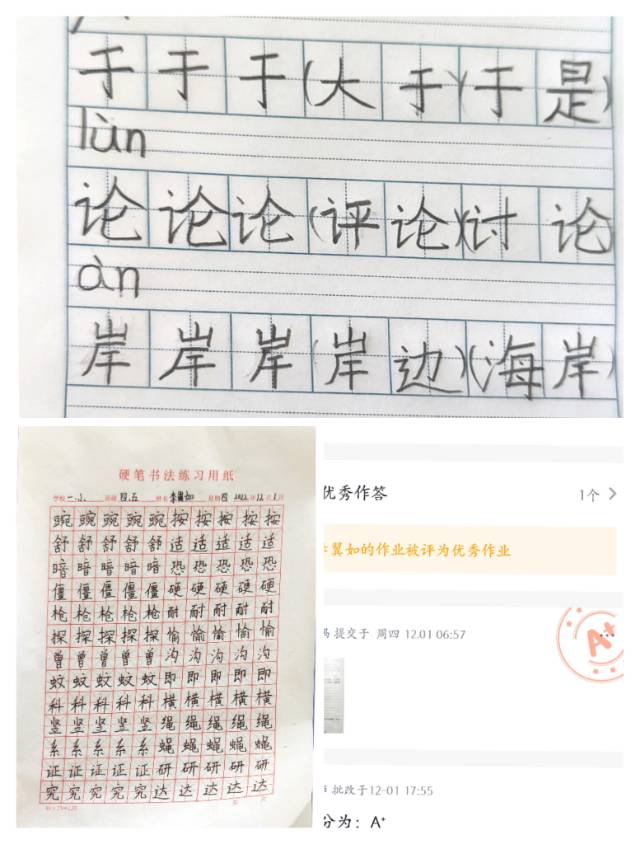 于于于(大于)(于是)
lùn
论论论(评论)(讨论)
àn
岸岸岸(岸边)(海岸)
硬笔书法练习用纸
豌豌豌豌豌按按按按按
舒舒舒舒舒适适适适适
暗暗暗暗暗恐恐恐恐恐
僵僵僵僵僵硬硬硬硬硬
枪枪枪枪枪耐耐耐耐耐
探探探探探愉愉愉愉愉
曾曾曾曾曾沟沟沟沟沟
蚊蚊蚊蚊蚊即即即即即
科科科科科横横横横横
竖竖竖竖竖绳绳绳绳绳
系系系系系蝇蝇蝇蝇蝇
证证证证证研研研研研
究究究究究达达达达达
优秀作答
1个
翼如的作业被评为优秀作业
提交于 周四 12.01 06:57
A+
批改于12-01 17:55
分为：A+